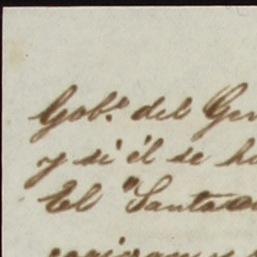 Gob.º del Gen
y si él se ha
El "Santa